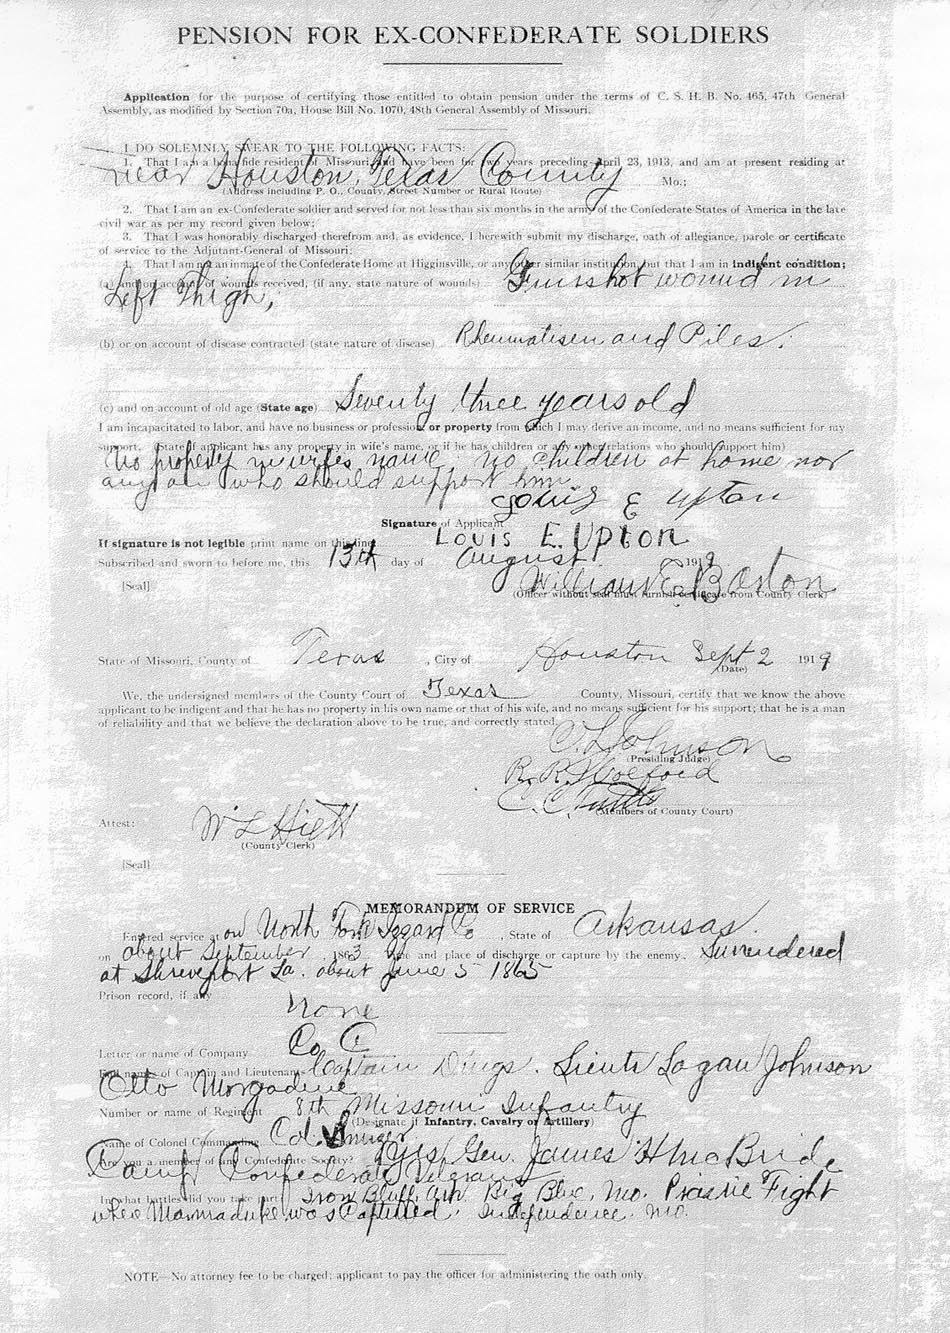 PENSION FOR EX-CONFEDERATE SOLDIERS
Application for the purpose of certifying those entitled to obtain pension under the terms of C. S. H. B. No. 465, 47th General
Assembly, as modified by Section 70a, House Bill No. 1070, 48th General Assembly of Missouri.
I DO SOLEMNLY SWEAR TO THE FOLLOWING FACTS:
1. That I am a bona fide resident of Missouri and have been for two years preceding April 23, 1913, and am at present residing at
near Houston, Texas County Mo.;
(Address including P. O., County, Street Number or Rural Route)
2. That I am an ex-Confederate soldier and served for not less than six months in the army of the Confederate States of America in the late
civil war as per my record given below;
3. That I was honorably discharged therefrom and, as evidence, I herewith submit my discharge, oath of allegiance, parole or certificate
of service to the Adjutant-General of Missouri.
4. That I am not an inmate of the Confederate Home at Higginsville, or any other similar institution but that I am in indigent condition;
(a) and on account of wounds received, (if any, state nature of wounds) Gunshot wound in
Left Thigh,
(b) or on account of disease contracted (state nature of disease) Rheumatisem and Piles.
(c) and on account of old age (State age) Seventy three years old
I am incapacitated to labor, and have no business or profession or property from which I may derive an income, and no means sufficient for my
support. (State if applicant has any property in wife's name, or if he has children or any other relations who should support him)
No property in wifes name no children at home nor
any who should support him
Louis E Upton
Signature of Applicant
If signature is not legible print name on this line LOUIS E. UPTON
Subscribed and sworn to before me, this 13th day of August 1919
[Seal] William E. Barton
(Officer without seal must furnish certificate from County Clerk)
State of Missouri, County of Texas, City of Houston Sept 2 1919
(Date)
We, the undersigned members of the County Court of Texas County, Missouri, certify that we know the above
applicant to be indigent and that he has no property in his own name or that of his wife, and no means sufficient for his support; that he is a man
of reliability and that we believe the declaration above to be true, and correctly stated.
Johnson
(Presiding Judge)
R. R.
C. C.
(Members of County Court)
Attest: W L Hiett
(County Clerk)
[Seal]
MEMORANDUM OF SERVICE
Entered service at on North Fork Izard Co, State of Arkansas.
on about September 1863 Time and place of discharge or capture by the enemy. Surrendered
at Shreveport La. about June 5 1865
Prison record, if any
None
Letter or name of Company Co C
Full names of Captain and Lieutenants Captain Dings. Lieuts Logan Johnson
Otto
Number or name of Regiment 8th Missouri Infantry
(Designate if Infantry, Cavalry or Artillery)
Name of Colonel Commanding Col.
Are you a member of any Confederate Society? Yes Gen. James H McBride
Camp Confederate Veterans
In what battles did you take part Iron Bluff, Ark Big Blue, Mo. Prairie Fight
where Marmaduke was Captured. Independence Mo.
NOTE—No attorney fee to be charged; applicant to pay the officer for administering the oath only.